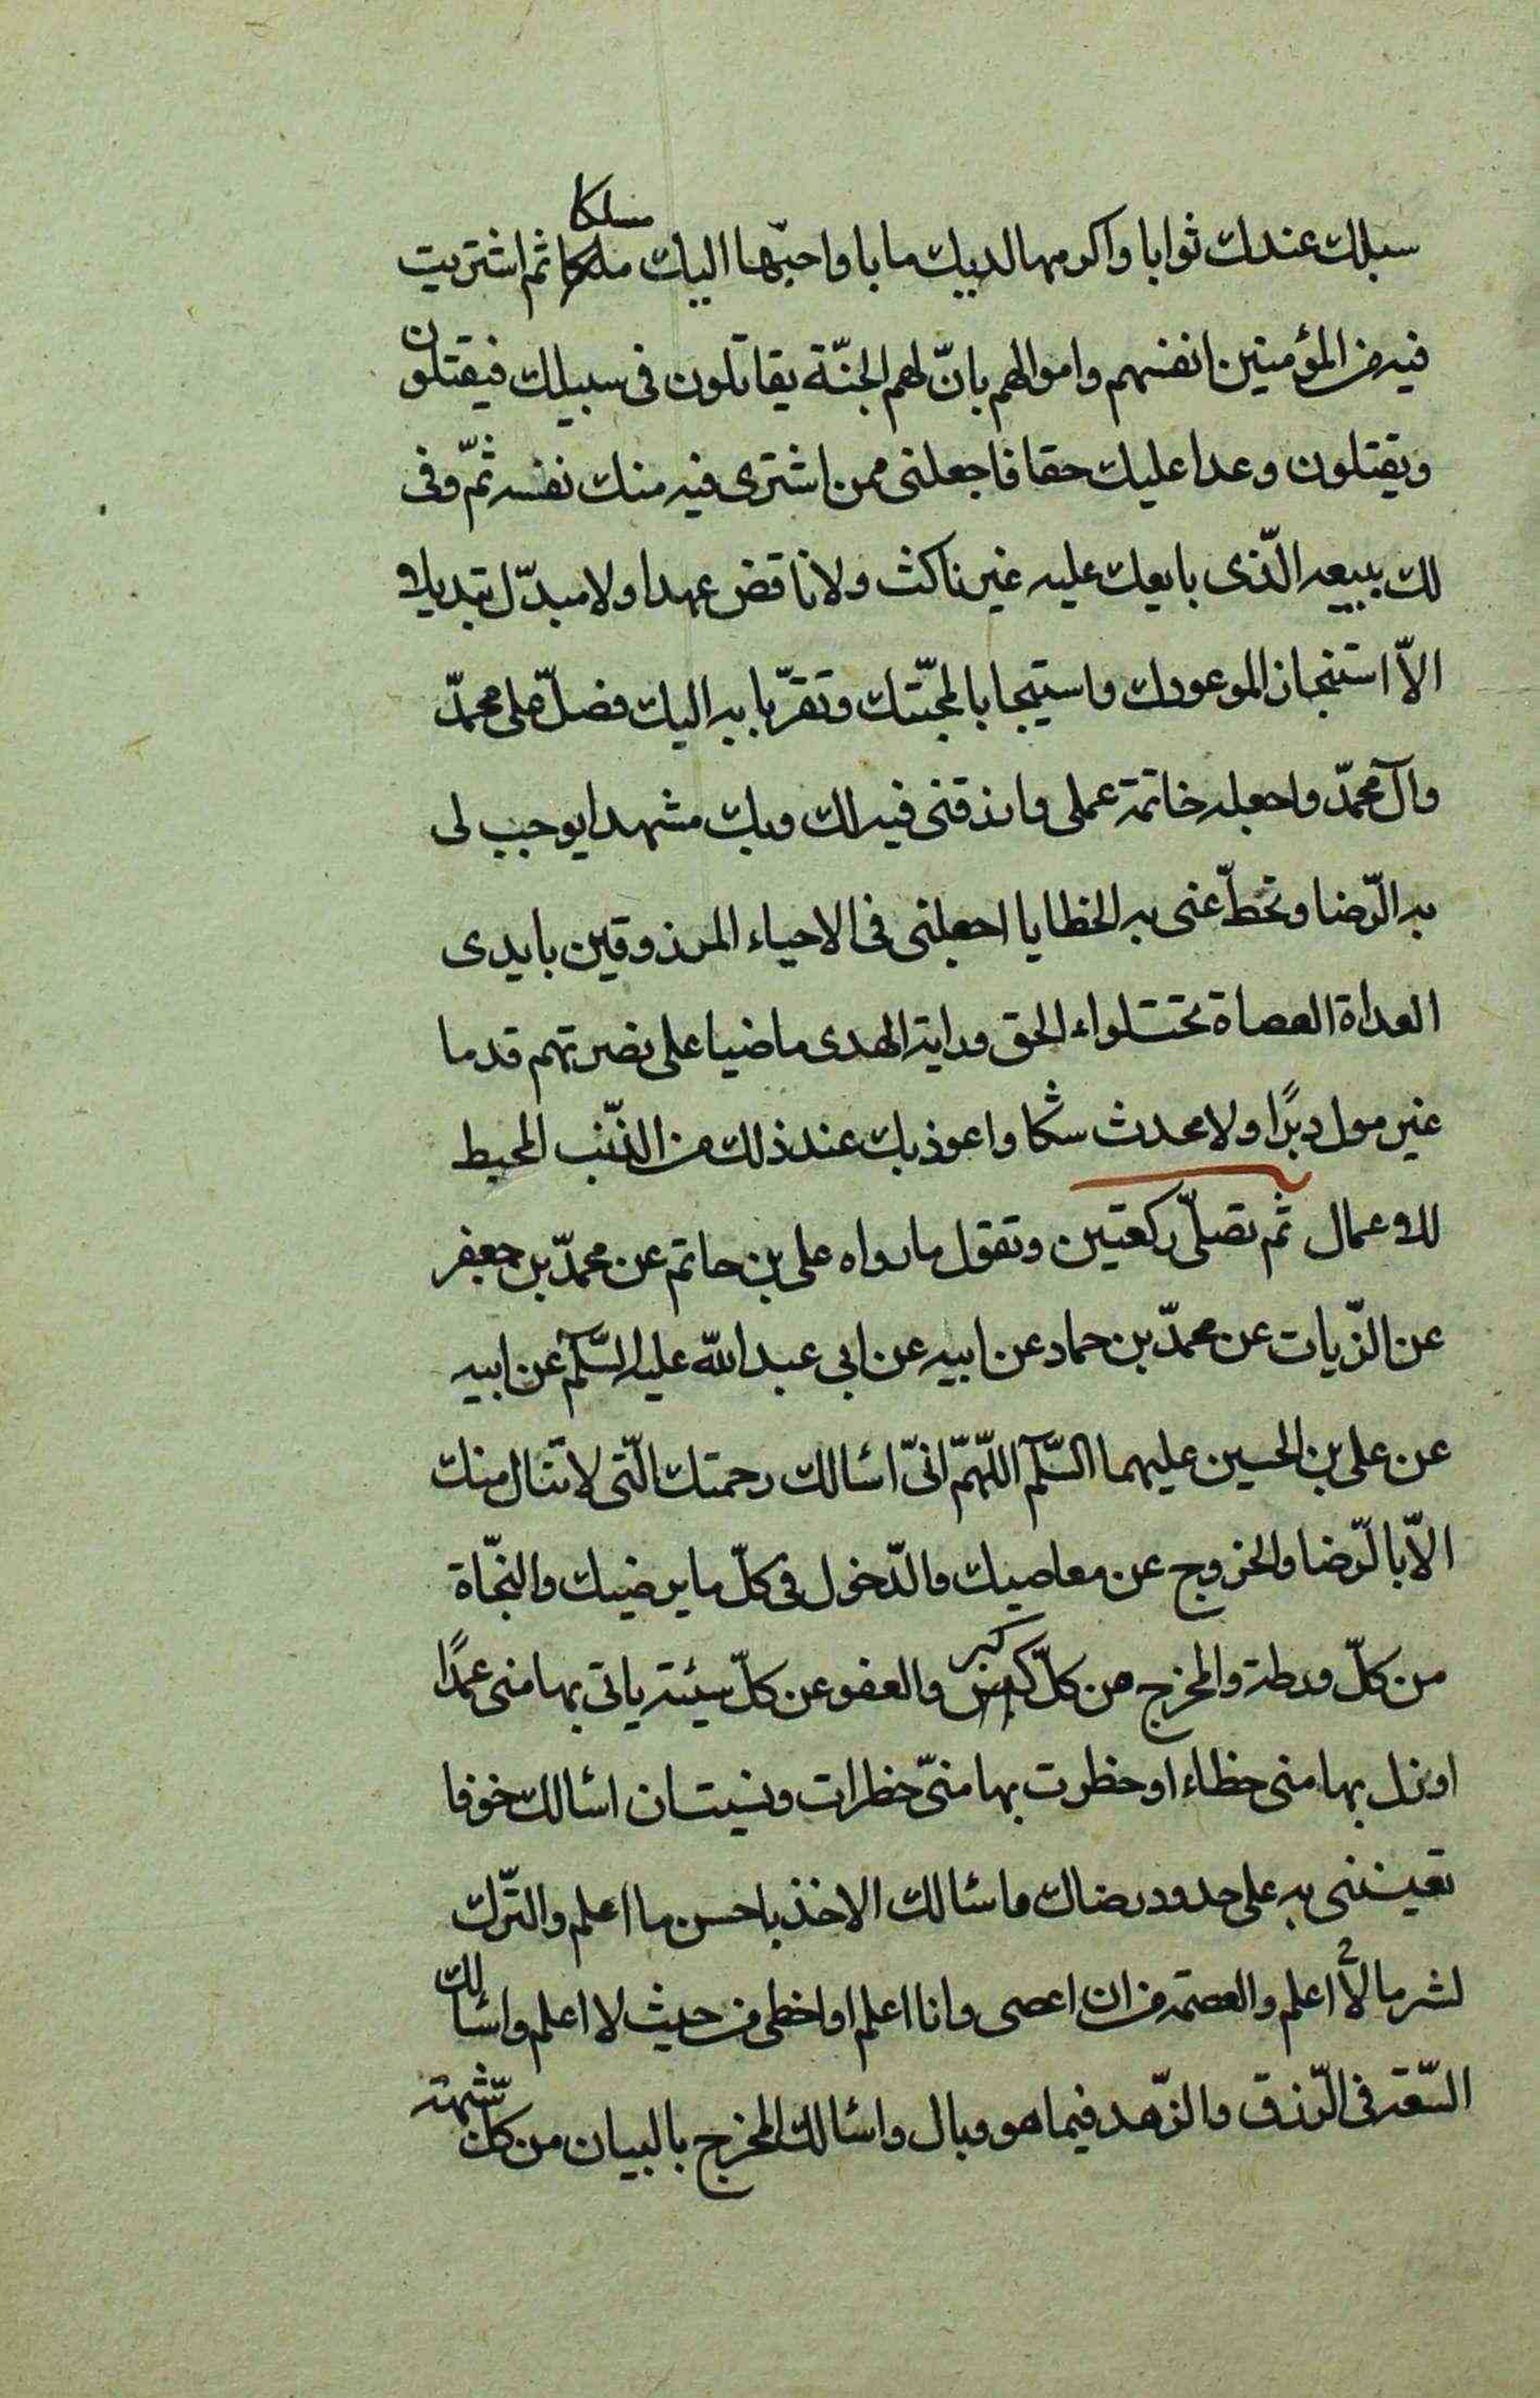 سبلك عندك ثوابا واكرمها لديك مابا واحبّها اليك مسلكا ثم اشتريت
فيه من المؤمنين انفسهم واموالهم بانّ لهم الجنّة يقاتلون فى سبيلك فيقتلون
ويقتلون وعدا عليك حقا فاجعلنى ممن اشترى فيه منك نفسه ثمّ وفى
لك ببيعه الّذى بايعك عليه غير ناكث ولا ناقض عهدا ولا مبدّل تبديلا
الاّ استنجازا لموعودك واستيجابا لمحبّتك وتقرّبا به اليك فصلّ على محمّد
وآل محمّد واجعله خاتمة عملى وارزقنى فيه لك وبك مشهدا يوجب لى
به الرّضا وتحطّ عنى به الخطايا اجعلنى فى الاحياء المرزوقين بايدى
العداة العصاة تحت لواء الحق وراية الهدى ماضيا على نصرتهم قدما
غير مول دبرًا ولا محدث شكا واعوذ بك عند ذلك من الذّنب المحيط
للاعمال ثم تصلّى ركعتين وتقول ما رواه على بن حاتم عن محمّد بن جعفر
عن الزّيات عن محمّد بن حماد عن ابيه عن ابى عبد اللّه عليه السّلم عن ابيه
عن على بن الحسين عليهما السّلم اللّهمّ انىّ اسالك رحمتك الّتى لا تنال منك
الاّ بالرّضا والخروج عن معاصيك والدّخول فى كلّ ما يرضيك والنجّاة
من كلّ ورطة والمخرج من كلّ كبر والعفو عن كلّ سيئة ياتى بها منى عمدًا
او نزل بها منى خطاء او خطرت بها منىّ خطرات ونسيتان اسالك خوفا
تعيننى به على حدود رضاك واسالك الاخذ باحسن ما اعلم والتّرك
لشر ما لا اعلم والعصمة من ان اعصى وانا اعلم او اخطى من حيث لا اعلم واسالك
السّعة فى الرّزق والزّهد فيما هو وبال واسالك المخرج بالبيان من كل شّبهة